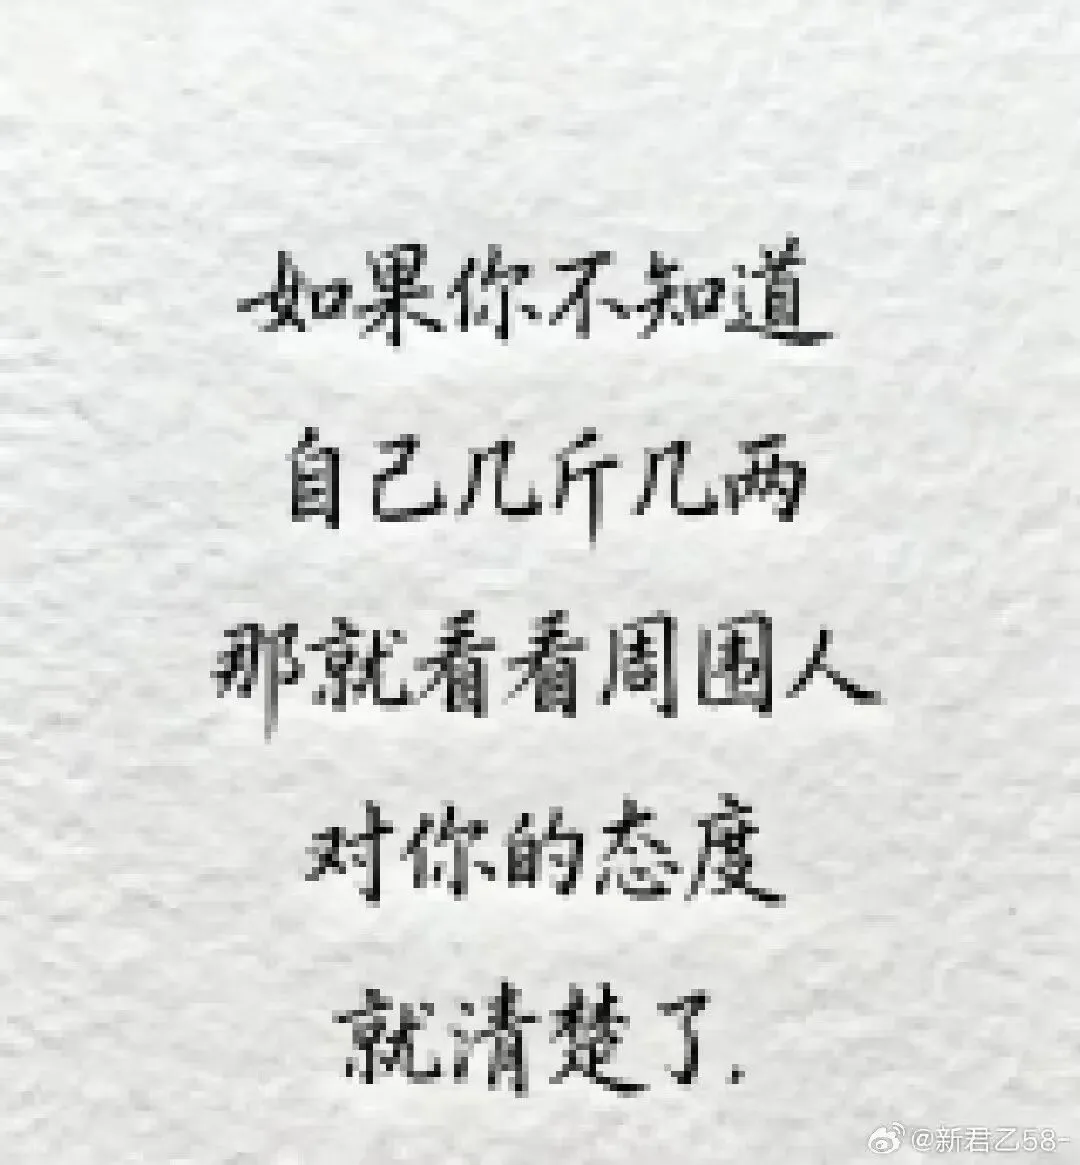 如果你不知道
自己几斤几两
那就看看周围人
对你的态度
就清楚了.
@新君乙58-